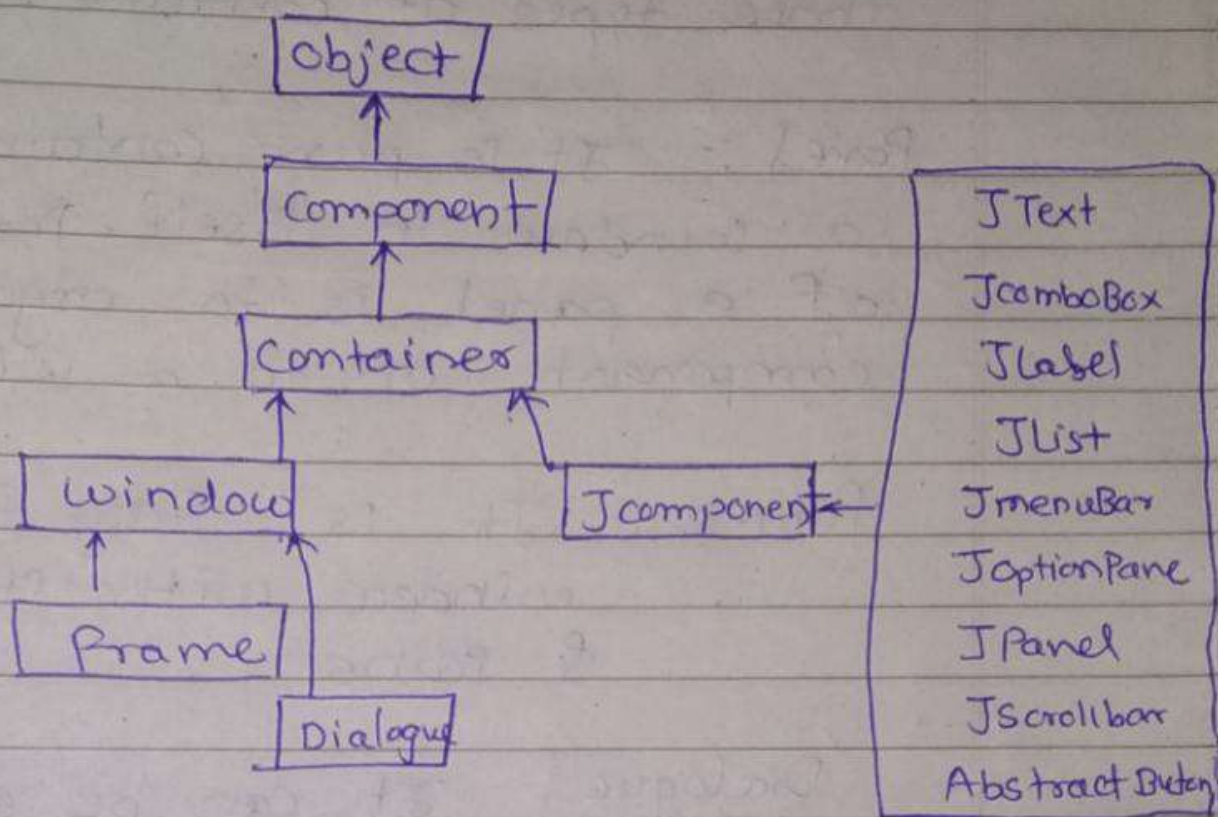 Object
Component
Container
Window
Frame
Dialogue
Jcomponent
JText
JcomboBox
JLabel
JList
JmenuBar
JoptionPane
JPanel
JScrollbar
Abstract Buton